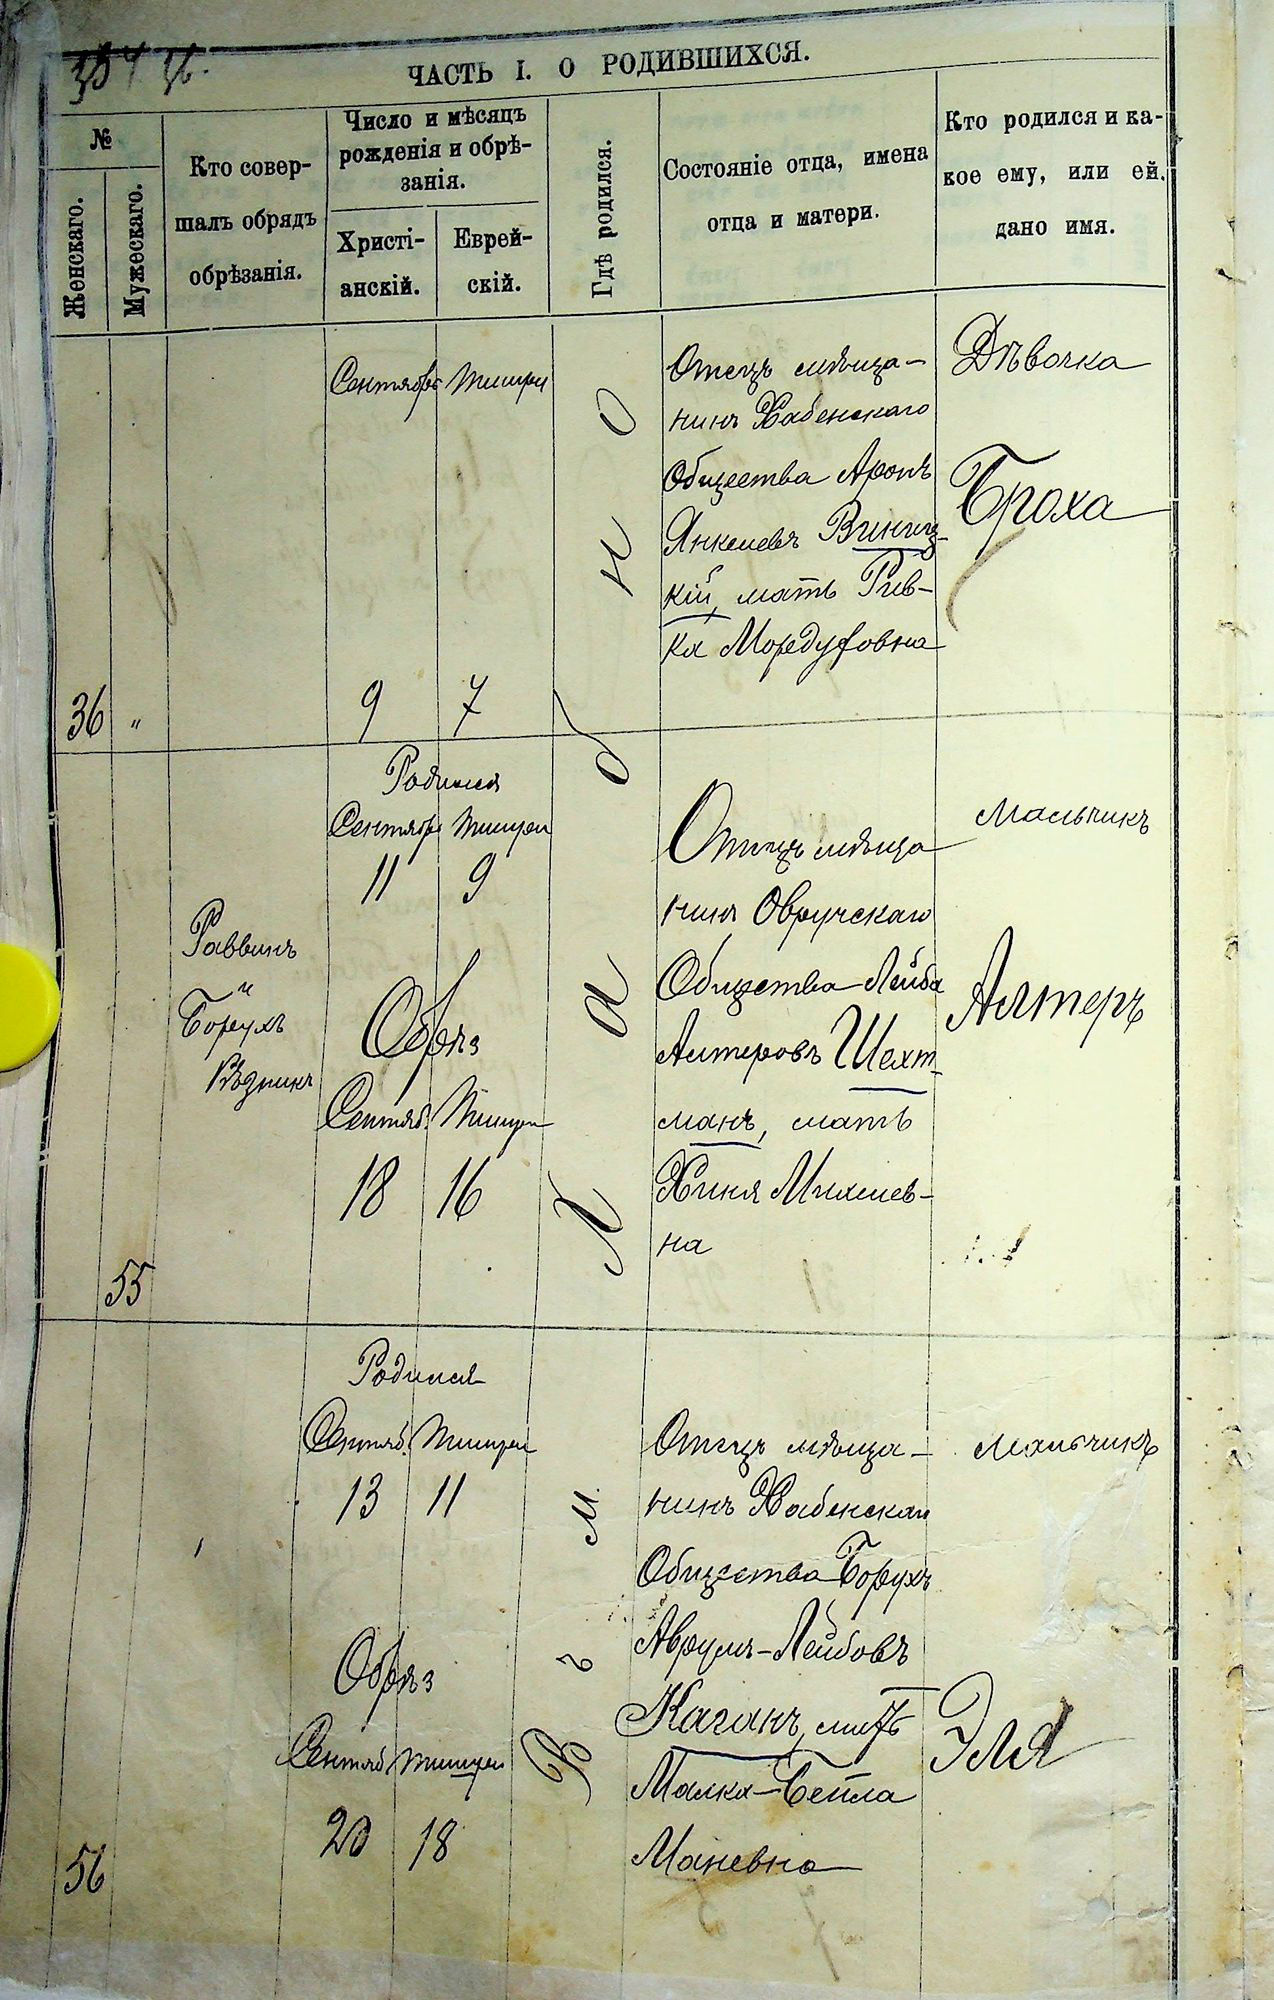 ЧАСТЬ I. О РОДИВШИХСЯ.
№
Женскаго.
Мужескаго.
Кто совер-
шалъ обрядъ
обрѣзанія.
Число и мѣсяцъ
рожденія и обрѣ-
занія.
Христі-
анскій.
Еврей-
скій.
Гдѣ родился.
Состояніе отца, имена
отца и матери.
Кто родился и ка-
кое ему, или ей.
дано имя.
Сентябрь Тишри
9 7
36 "
Отецъ мѣща-
нинъ Хабенскаго
Общества Аронъ
Янкелевъ Виниц-
кій, мать Рив-
ка Мордуховна
Дѣвочка
Броха
Раввинъ
и
Борухъ
Рѣзникъ
Родился
Сентябр Тишри
11 9
Обрѣз
Сентяб. Тишри
18 16
55
Отецъ мѣща
нинъ Овручскаго
Общества Лейба
Алтеровъ Шехт-
манъ, мать
Хиня Михелев-
на
Мальчикъ
Алтеръ
Родился
Сентяб. Тишри
13 11
Обрѣз
Сентяб Тишри
20 18
56
Въ м. Лабно
Отецъ мѣща-
нинъ Хабенскаго
Общества Борухъ
Аврумъ-Лейбовъ
Каганъ, мать
Малка-Бейла
Маневна
Мальчикъ
Эля